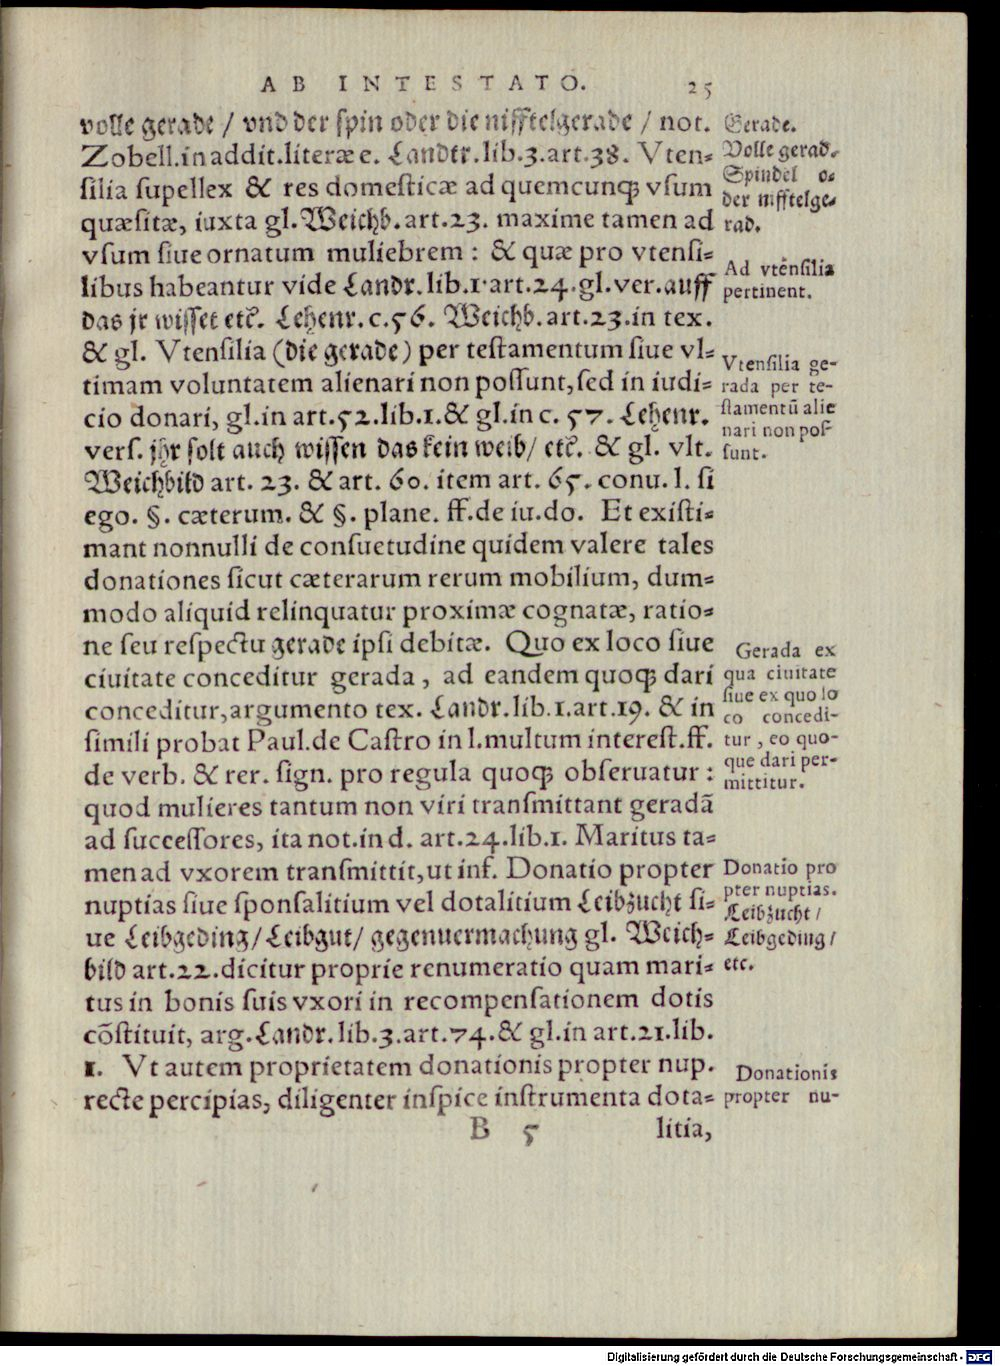 AB INTESTATO. 25
volle gerade / vnd der spin oder die nifftelgerade / not.
Zobell.in addit.literæ e. Landtr.lib.3.art.38. Vten=
silia supellex & res domesticæ ad quemcunqꝫ vsum
quæsitæ, iuxta gl.Weichb.art.23. maxime tamen ad
vsum siue ornatum muliebrem : & quæ pro vtensi=
libus habeantur vide Landr.lib.1.art.24.gl.ver.auff
das jr wisset etc. Lehenr.c.56. Weichb.art.23.in tex.
& gl. Vtensilia (die gerade) per testamentum siue vl=
timam voluntatem alienari non possunt, sed in iudi=
cio donari, gl.in art.52.lib.1.& gl.in c. 57. Lehenr.
vers. jhr solt auch wissen das kein weib/ etc. & gl. vlt.
Weichbild art. 23. & art. 60. item art. 65. conu. l. si
ego. §. cæterum. & §. plane. ff.de iu.do. Et existi=
mant nonnulli de consuetudine quidem valere tales
donationes sicut cæterarum rerum mobilium, dum=
modo aliquid relinquatur proximæ cognatæ, ratio=
ne seu respectu gerade ipsi debitæ. Quo ex loco siue
ciuitate conceditur gerada, ad eandem quoqꝫ dari
conceditur,argumento tex. Landr.lib.1.art.19. & in
simili probat Paul.de Castro in l.multum interest.ff.
de verb. & rer. sign. pro regula quoqꝫ obseruatur :
quod mulieres tantum non viri transmittant geradã
ad successores, ita not.in d. art.24.lib.1. Maritus ta=
men ad vxorem transmittit,ut inf. Donatio propter
nuptias siue sponsalitium vel dotalitium Leibzucht si=
ue Leibgeding/Leibgut/ gegenuermachung gl. Weich=
bild art.22.dicitur proprie renumeratio quam mari=
tus in bonis suis vxori in recompensationem dotis
cõstituit, arg.Landr.lib.3.art.74.& gl.in art.21.lib.
1. Vt autem proprietatem donationis propter nup.
recte percipias, diligenter inspice instrumenta dota=
B 5 litia,
Gerade.
Volle gerad.
Spindel o=
der nifftelge=
rad.
Ad vtensilia
pertinent.
Vtensilia ge-
rada per te-
stamentũ alie
nari non pos
sunt.
Gerada ex
qua ciuitate
siue ex quo lo
co concedi-
tur, eo quo-
que dari per-
mittitur.
Donatio pro
pter nuptias.
Leibzucht/
Leibgeding/
etc.
Donationis
propter nu-
Digitalisierung gefördert durch die Deutsche Forschungsgemeinschaft - DFG